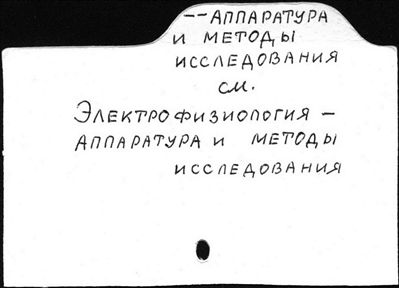 --АППАРАТУРА
И МЕТОДЫ
ИССЛЕДОВАНИЯ
СМ.
ЭЛЕКТРОФИЗИОЛОГИЯ -
АППАРАТУРА И МЕТОДЫ
ИССЛЕДОВАНИЯ